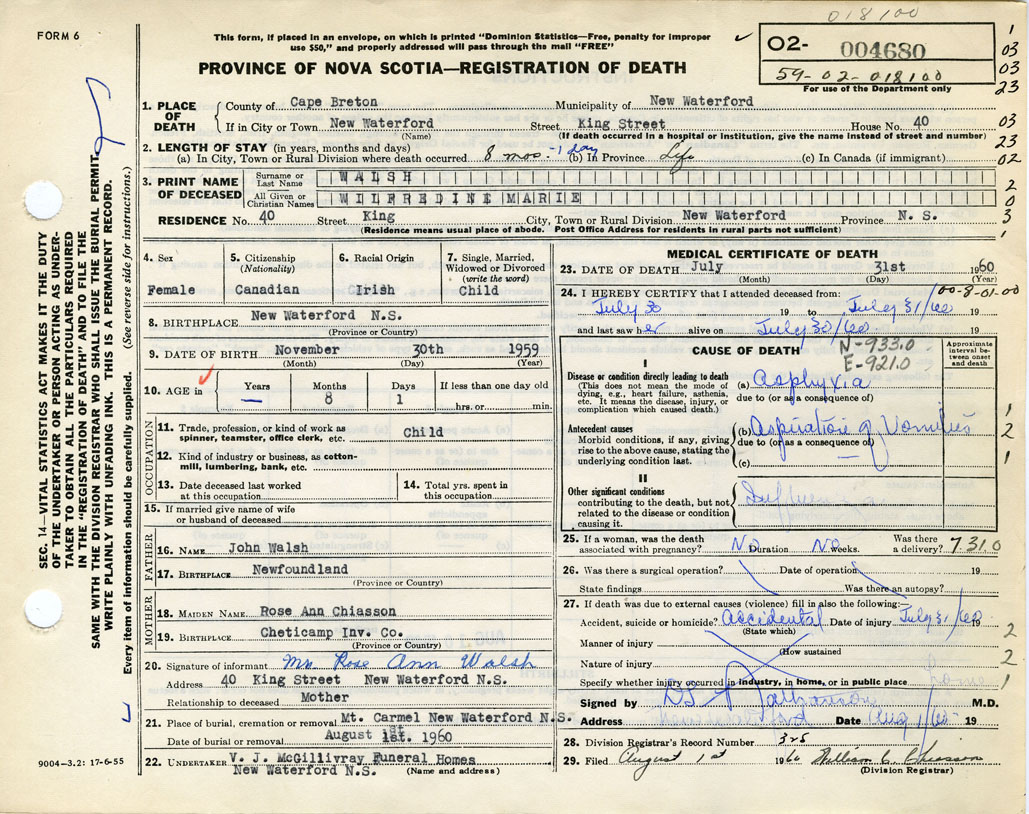 018100
FORM 6
This form, if placed in an envelope, on which is printed "Dominion Statistics—Free, penalty for improper
use $50," and properly addressed will pass through the mail "FREE"
02- 004680
59-02-018100
For use of the Department only
PROVINCE OF NOVA SCOTIA—REGISTRATION OF DEATH
1
03
03
23
03
23
02
2
0
3
1
SEC. 14—VITAL STATISTICS ACT MAKES IT THE DUTY
OF THE UNDERTAKER OR PERSON ACTING AS UNDER-
TAKER TO OBTAIN ALL THE PARTICULARS REQUIRED
IN THE "REGISTRATION OF DEATH" AND TO FILE THE
SAME WITH THE DIVISION REGISTRAR WHO SHALL ISSUE THE BURIAL PERMIT.
WRITE PLAINLY WITH UNFADING INK. THIS IS A PERMANENT RECORD.
Every item of information should be carefully supplied. (See reverse side for instructions.)
1. PLACE OF DEATH
County of Cape Breton Municipality of New Waterford
If in City or Town New Waterford Street King Street House No. 40
(Name) (If death occurred in a hospital or institution, give the name instead of street and number)
2. LENGTH OF STAY (in years, months and days)
(a) In City, Town or Rural Division where death occurred 8 mos. - 1 day (b) In Province Life (c) In Canada (if immigrant)
3. PRINT NAME OF DECEASED
Surname or Last Name WALSH
All Given or Christian Names WILFREDINE MARIE
RESIDENCE No. 40 Street King City, Town or Rural Division New Waterford Province N. S.
(Residence means usual place of abode. Post Office Address for residents in rural parts not sufficient)
4. Sex
Female
5. Citizenship
(Nationality)
Canadian
6. Racial Origin
Irish
7. Single, Married,
Widowed or Divorced
(write the word)
Child
8. BIRTHPLACE New Waterford N.S.
(Province or Country)
9. DATE OF BIRTH November 30th 1959
(Month) (Day) (Year)
10. AGE in
Years Months Days If less than one day old
— 8 1 hrs. or min.
OCCUPATION
11. Trade, profession, or kind of work as
spinner, teamster, office clerk, etc. Child
12. Kind of industry or business, as cotton-
mill, lumbering, bank, etc.
13. Date deceased last worked
at this occupation
14. Total yrs. spent in
this occupation
15. If married give name of wife
or husband of deceased
FATHER
16. NAME John Walsh
17. BIRTHPLACE Newfoundland
(Province or Country)
MOTHER
18. MAIDEN NAME Rose Ann Chiasson
19. BIRTHPLACE Cheticamp Inv. Co.
(Province or Country)
20. Signature of informant Mrs Rose Ann Walsh
Address 40 King Street New Waterford N.S.
Relationship to deceased Mother
21. Place of burial, cremation or removal Mt. Carmel New Waterford N.S.
Date of burial or removal August 1st. 1960
22. UNDERTAKER V. J. McGillivray Funeral Homes
New Waterford N.S. (Name and address)
9004-3.2: 17-6-55
MEDICAL CERTIFICATE OF DEATH
23. DATE OF DEATH July 31st 1960
(Month) (Day) (Year)
00-8-01-00
24. I HEREBY CERTIFY that I attended deceased from:
July 30 19 to July 31/60 19
and last saw her alive on July 30/60 19
N-933.0
E-921.0
CAUSE OF DEATH
Approximate
interval be-
tween onset
and death
I
Disease or condition directly leading to death
(This does not mean the mode of
dying, e.g., heart failure, asthenia,
etc. It means the disease, injury, or
complication which caused death.)
(a) Asphyxia
due to (or as a consequence of)
Antecedent causes
Morbid conditions, if any, giving
rise to the above cause, stating the
underlying condition last.
(b) Aspiration of Vomitus
due to (or as a consequence of)
(c) —
1
2
1
II
Other significant conditions
contributing to the death, but not
related to the disease or condition
causing it.
25. If a woman, was the death
associated with pregnancy? No Duration No weeks. Was there
a delivery? 7.31.0
26. Was there a surgical operation? Date of operation 19
State findings Was there an autopsy?
27. If death was due to external causes (violence) fill in also the following:—
Accident, suicide or homicide? Accidental Date of injury July 31/60 19
(State which)
Manner of injury
(How sustained
Nature of injury
Specify whether injury occurred in industry, in home, or in public place
2
2
1
Signed by Nathanson M.D.
Address Date Aug 1/60 19
28. Division Registrar's Record Number 325
29. Filed August 1st 1960 William C. Chiasson
(Division Registrar)